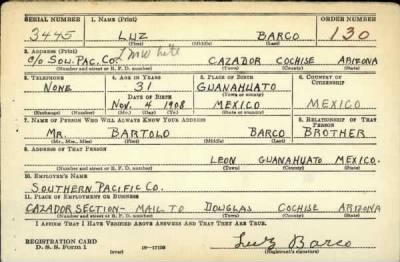 SERIAL NUMBER 1. NAME (Print) ORDER NUMBER
3445 LUZ BARCO 130
(First) (Middle) (Last)
2. ADDRESS (Print)
c/o SOU. PAC. CO. CAZADOR COCHISE ARIZONA
(Number and street or R. F. D. number) (Town) (County) (State)
3. TELEPHONE 4. AGE IN YEARS 5. PLACE OF BIRTH 6. COUNTRY OF CITIZENSHIP
NONE 31 GUANAHUATO
(Town or county)
DATE OF BIRTH
NOV. 4 1908 MEXICO MEXICO
(Exchange) (Number) (Mo.) (Day) (Yr.) (State or country)
7. NAME OF PERSON WHO WILL ALWAYS KNOW YOUR ADDRESS 8. RELATIONSHIP OF THAT PERSON
MR. BARTOLO BARCO BROTHER
(Mr., Mrs., Miss) (First) (Middle) (Last)
9. ADDRESS OF THAT PERSON
LEON GUANAHUATO MEXICO.
(Number and street or R. F. D. number) (Town) (County) (State)
10. EMPLOYER'S NAME
SOUTHERN PACIFIC CO.
11. PLACE OF EMPLOYMENT OR BUSINESS
CAZADOR SECTION- MAIL TO DOUGLAS COCHISE ARIZONA
(Number and street or R. F. D. number) (Town) (County) (State)
I AFFIRM THAT I HAVE VERIFIED ABOVE ANSWERS AND THAT THEY ARE TRUE.
REGISTRATION CARD
D. S. S. Form 1 (over) 16-17105 Luz Barco
(Registrant's signature)